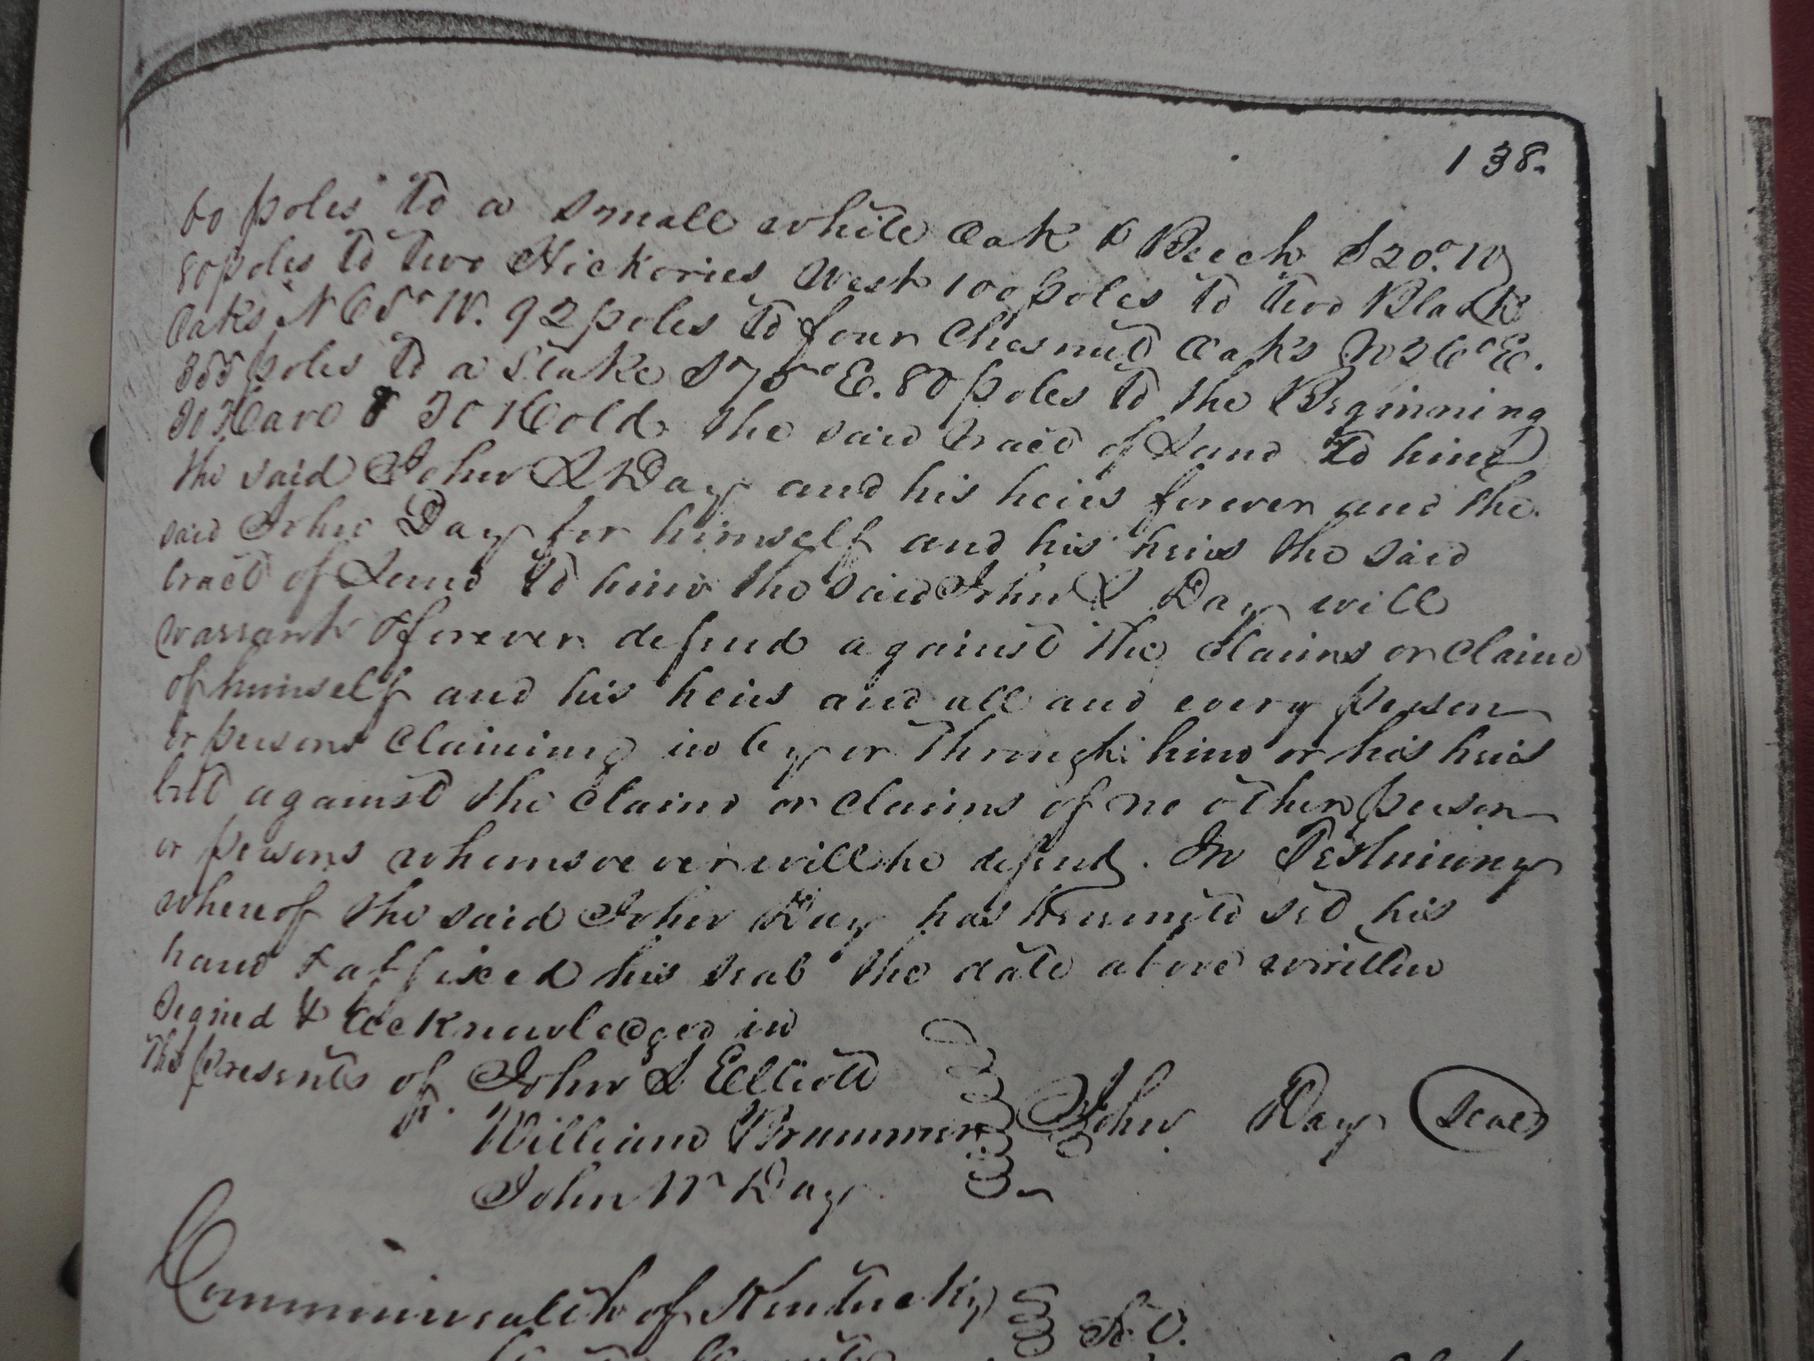 138.
60 poles to a small white Oak & Beech S 20° W
80 poles to two Hickories West 100 poles to two Black
Oaks N 65° W. 92 poles to four Chesnut Oaks N 26° E.
355 poles to a Stake S 75° E. 80 poles to the Beginning
To Have & To Hold the said tract of Land to him
the said John S Day and his heirs forever and the
said John Day for himself and his heirs the said
tract of Land to him the said John S Day will
warrant & forever defend against the Claims or Claim
of himself and his heirs and all and every person
or persons Claiming in by or through him or his heirs
but against the Claim or claims of no other person
or persons whomsoever will he defend. In Testimony
whereof the said John Day has hereunto set his
hand & affixed his seal the date above written
Signed & Acknowledged in
the presents of John S Elliott
William Brummer John Day Seal
John W Day
Commonwealth of Kentucky